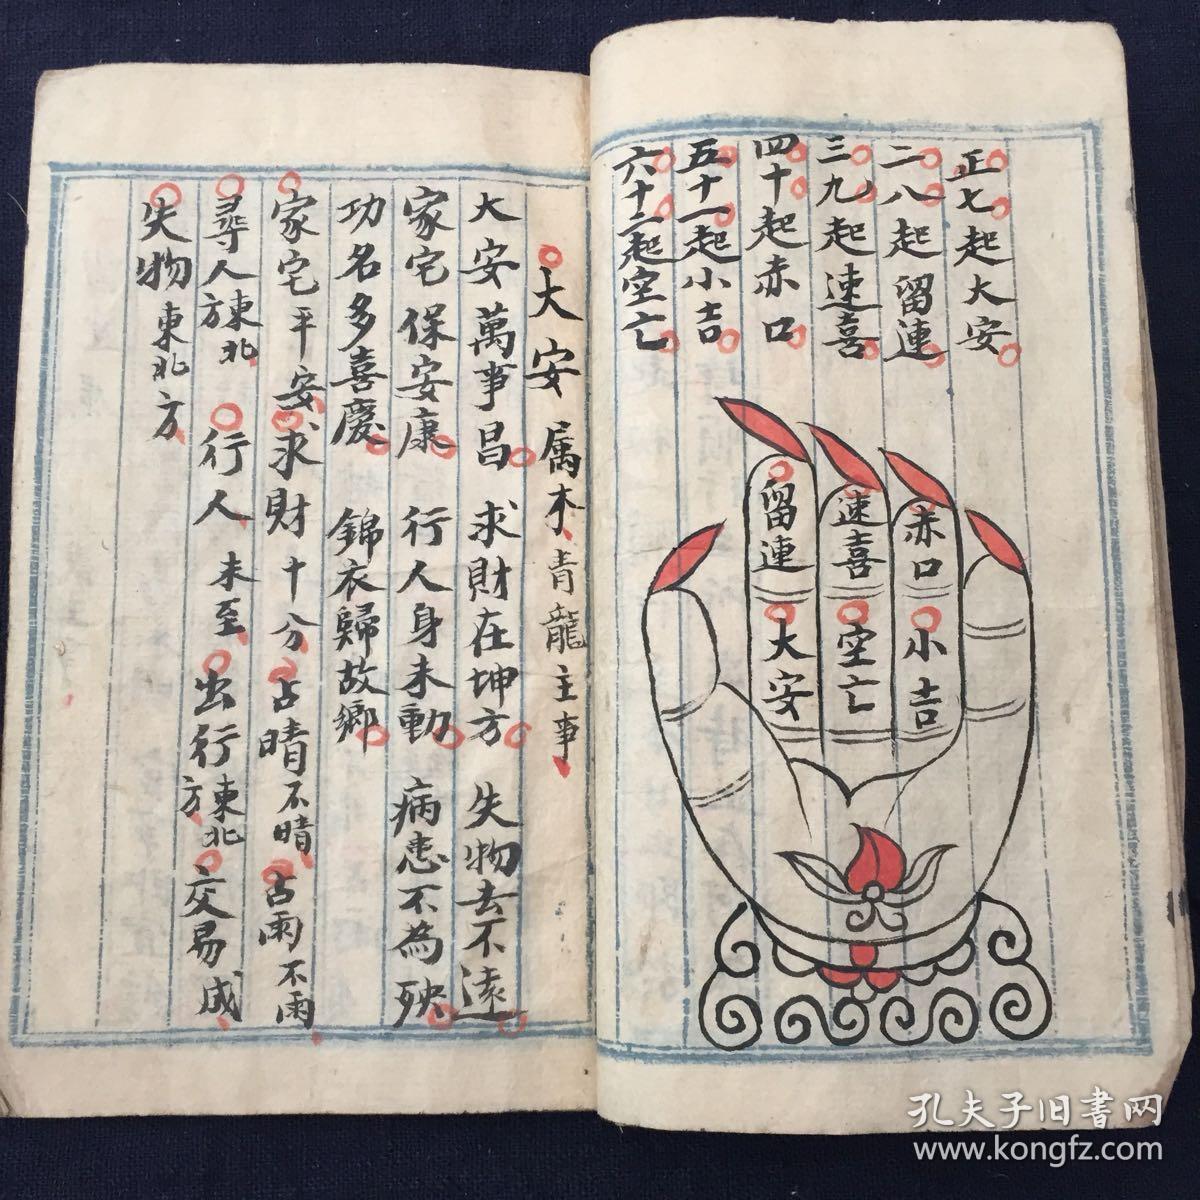 正七起大安
二八起留連
三九起速喜
四十起赤口
五十一起小吉
六十二起空亡
赤口
小吉
速喜
空亡
留連
大安
大安属木青龍主事
大安萬事昌 求財在坤方 失物去不遠
家宅保安康 行人身未動 病患不為殃
功名多喜慶 錦衣歸故鄉
家宅平安 求財十分 占晴不晴 占雨不雨
尋人東北方 行人未至 出行東北方 交易成
失物東北方
孔夫子旧书网
www.kongfz.com